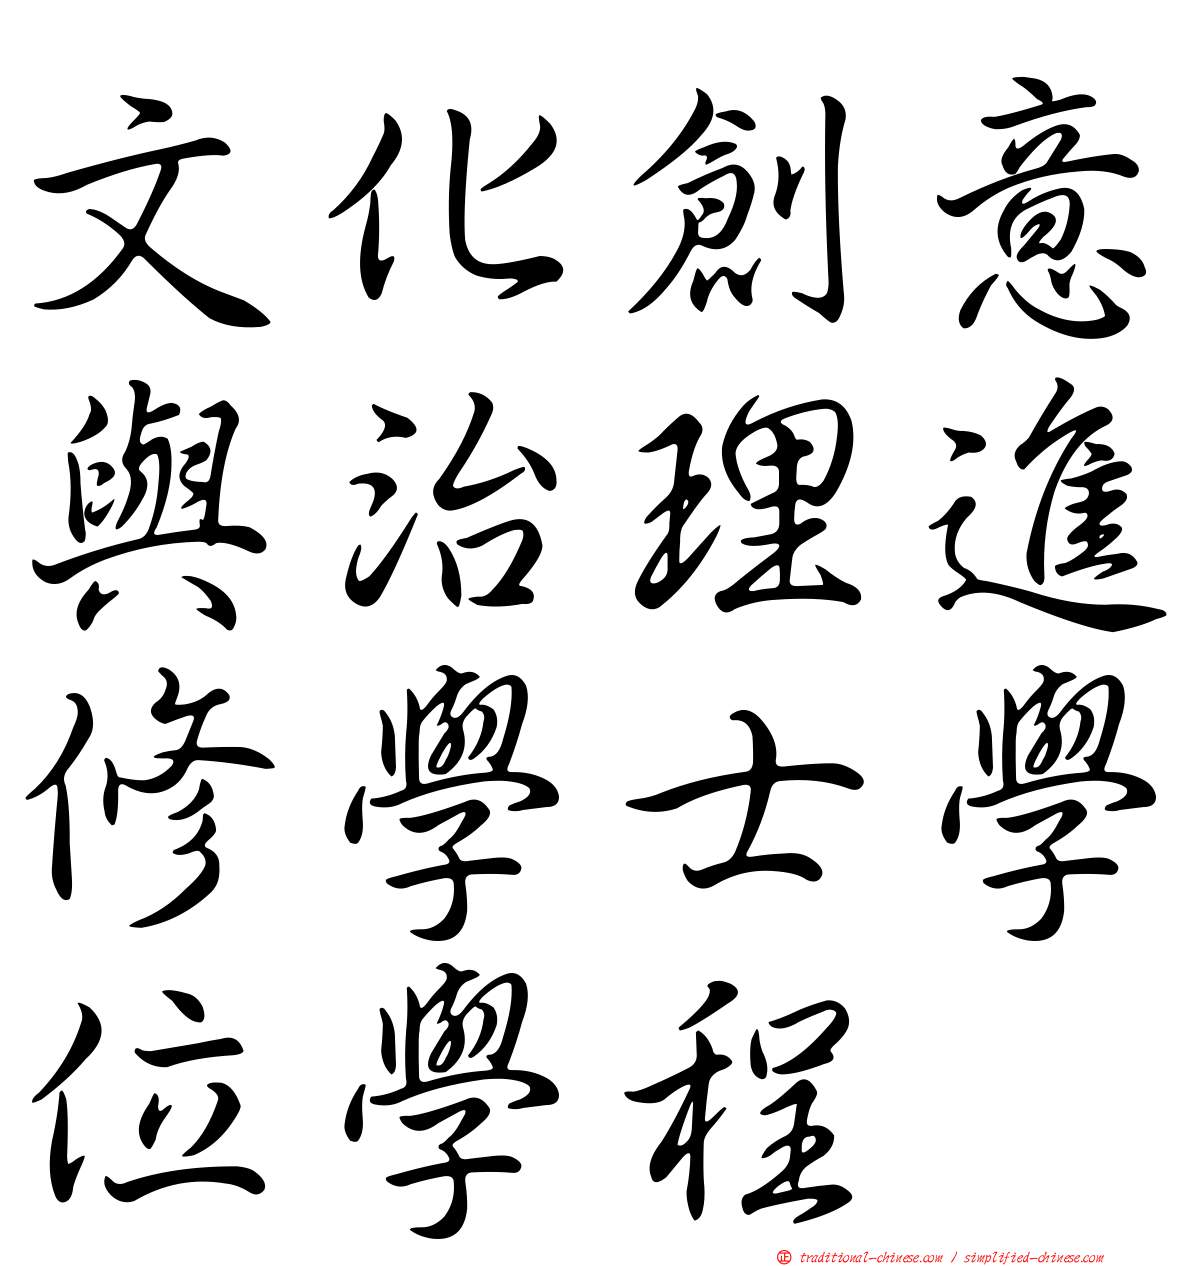 文化創意
與治理進
修學士學
位學程
正 traditional-chinese.com / simplified-chinese.com